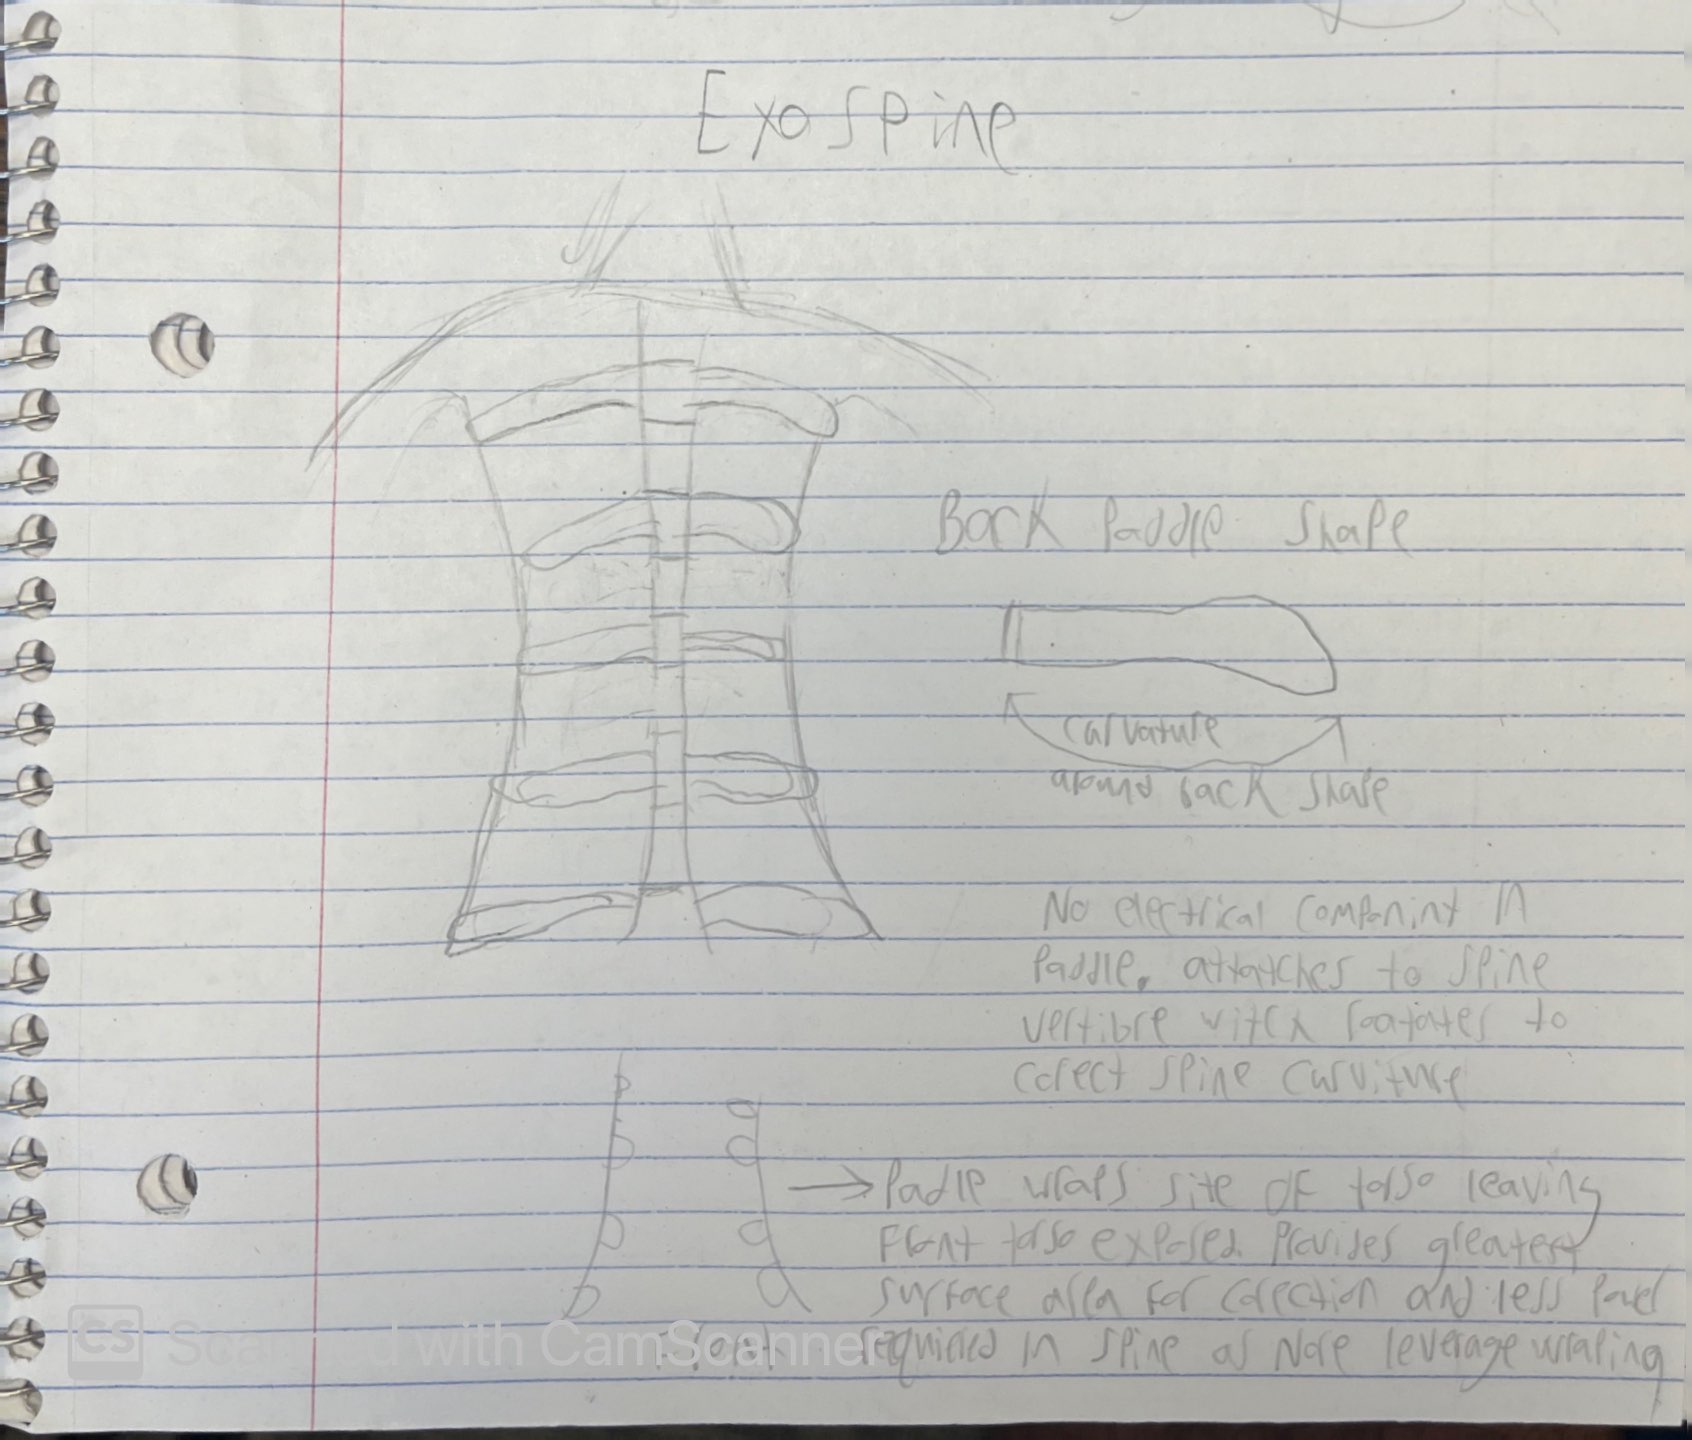 Exospine
Back Paddle Shape
curvature
around back shape
No electrical componint in
Paddle. attatches to spine
vertibre witch roatates to
corect spine curviture
Padle wraps site of torso leaving
Front torso exposed. Provides greatest
surface area for corection and less power
Front
required in spine as more leverage wraping
CS Scanned with CamScanner